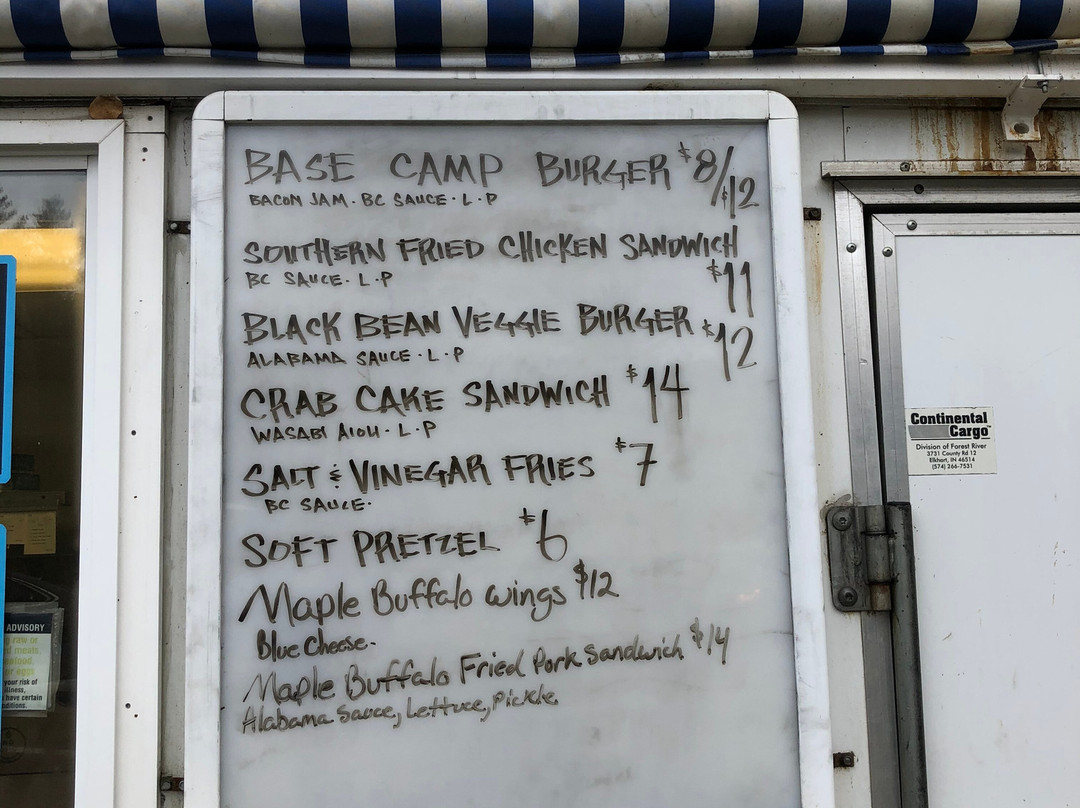 BASE CAMP BURGER $8/$12
BACON JAM · BC SAUCE · L · P
SOUTHERN FRIED CHICKEN SANDWICH
$11
BC SAUCE · L · P
BLACK BEAN VEGGIE BURGER $12
ALABAMA SAUCE · L · P
CRAB CAKE SANDWICH $14
WASABI AIOLI · L · P
SALT & VINEGAR FRIES $7
BC SAUCE ·
SOFT PRETZEL $6
Maple Buffalo wings $12
Blue Cheese.
Maple Buffalo Fried Pork Sandwich $14
Alabama Sauce, Lettuce, Pickle
Continental
Cargo
Division of Forest River
3731 County Rd 12
Elkhart, IN 46514
(574) 266-7531
ADVISORY
raw or
meats.
eggs
your risk of
illness,
have certain